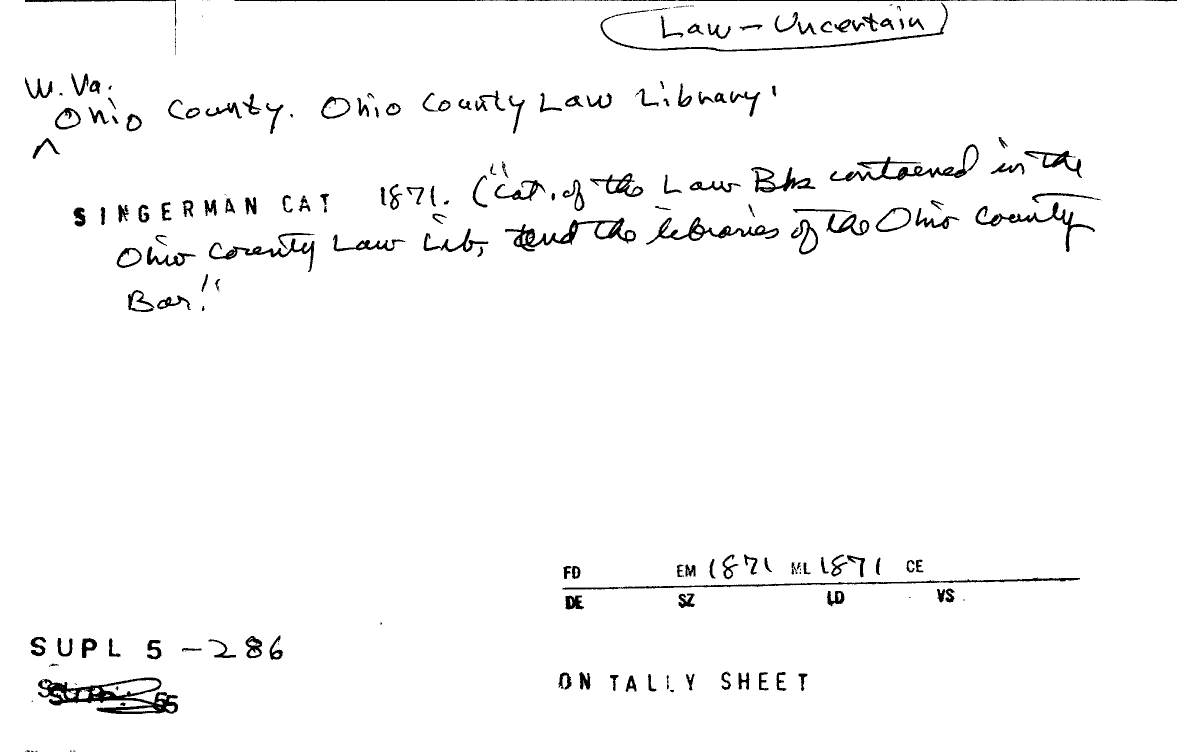 Law - Uncertain
W. Va.
^ Ohio County. Ohio County Law Library.
SINGERMAN CAT 1871. ("Cat. of the Law Bks contained in the
Ohio County Law Lib, and the libraries of the Ohio County
Bar."
FD EM 1871 ML 1871 CE
DE SZ LD VS
SUPL 5 - 286
55
ON TALLY SHEET